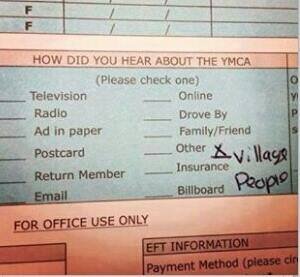 F / /
F / /
HOW DID YOU HEAR ABOUT THE YMCA
(Please check one)
Television Online
Radio Drove By
Ad in paper Family/Friend
Postcard Other X Village People
Return Member Insurance
Email Billboard
FOR OFFICE USE ONLY
EFT INFORMATION
Payment Method (please cir